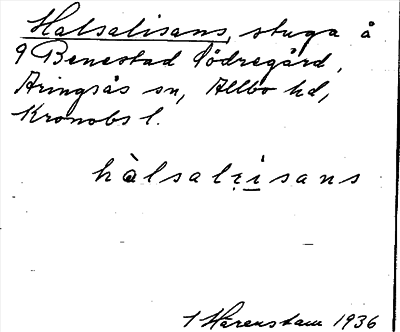 Halsalisans, stuga å
9 Benestad Södregård,
Aringsås sn, Allbo hd,
Kronobs l.
hàlsalisans
1 Härenstam 1936